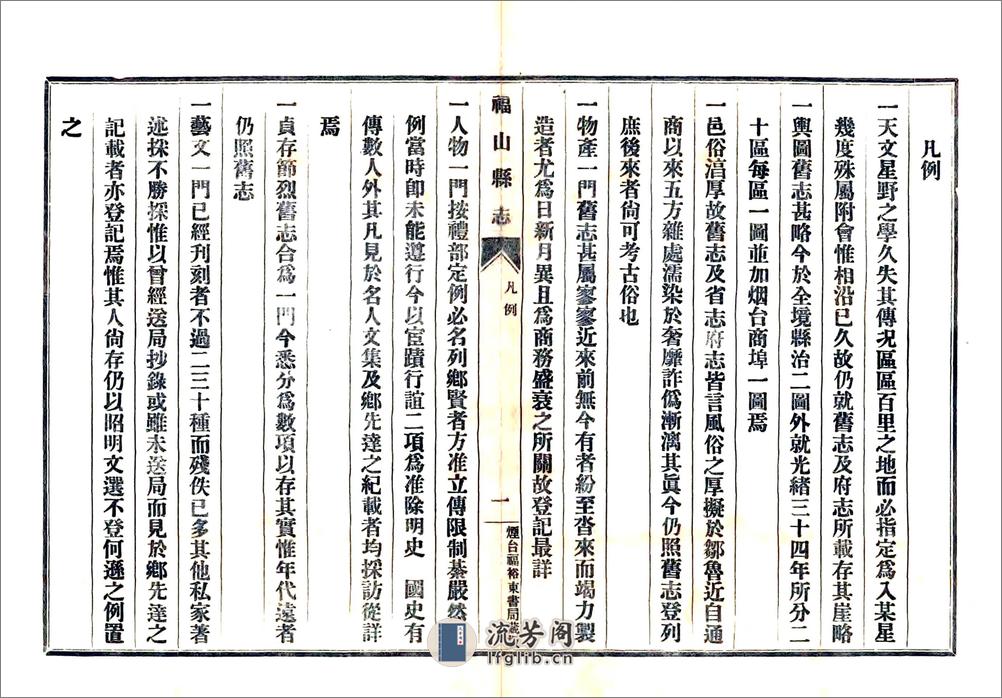 凡例
一天文星野之學久失其傳况區區百里之地而必指定爲入某星
幾度殊屬附會惟相沿已久故仍就舊志及府志所載存其崖略
一輿圖舊志甚略今於全境縣治二圖外就光緒三十四年所分二
十區每區一圖並加烟台商埠一圖焉
一邑俗湻厚故舊志及省志府志皆言風俗之厚擬於鄒魯近自通
商以來五方雜處濡染於奢靡詐僞漸漓其眞今仍照舊志登列
庶後來者尙可考古俗也
一物產一門舊志甚屬寥寥近來前無今有者紛至沓來而竭力製
造者尤爲日新月異且爲商務盛衰之所關故登記最詳
福山縣志
凡例
一
煙台福裕東書局
一人物一門按禮部定例必名列鄉賢者方准立傳限制綦嚴然
例當時卽未能遵行今以宦蹟行誼二項爲准除明史 國史有
傳數人外其凡見於名人文集及鄉先達之紀載者均採訪從詳
焉
一貞存節烈舊志合爲一門今悉分爲數項以存其實惟年代遠者
仍照舊志
一藝文一門已經刊刻者不過二三十種而殘佚已多其他私家著
述採不勝採惟以曾經送局抄錄或雖未送局而見於鄉先達之
記載者亦登記焉惟其人尙存仍以昭明文選不登何遜之例置
之
流芳阁
lfglib.cn